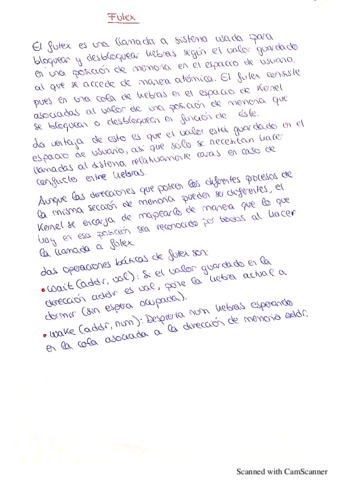 Futex
El futex es una llamada a sistema usada para
bloquear y desbloquear hebras según el valor guardado
en una posición de memoria en el espacio de usuario,
al que se accede de manera atómica. El futex consiste
pues en una cola de hebras en el espacio de Kernel
asociadas al valor de una posición de memoria que
se bloquean o desbloquean en función de éste.
La ventaja de esto es que el valor está guardado en el
espacio de usuario, así que solo se necesitan hacer
llamadas al sistema relativamente caras en caso de
conflicto entre hebras.
Aunque las direcciones que poseen los diferentes procesos de
la misma sección de memoria pueden ser diferentes, el
Kernel se encarga de mapearlo de manera que lo que
hay en esa posición sea reconocido por todos al hacer
la llamada a futex
Las operaciones básicas de futex son:
• wait (addr, val): Si el valor guardado en la
dirección addr es val, pone la hebra actual a
dormir (sin espera ocupada).
• wake (addr, num): Despierta num hebras esperando
en la cola asociada a la dirección de memoria addr.
Scanned with CamScanner